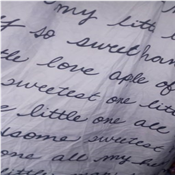 my little
so sweet hand
little love apple of
sweetest one litt
little one all
some sweetest
one all my